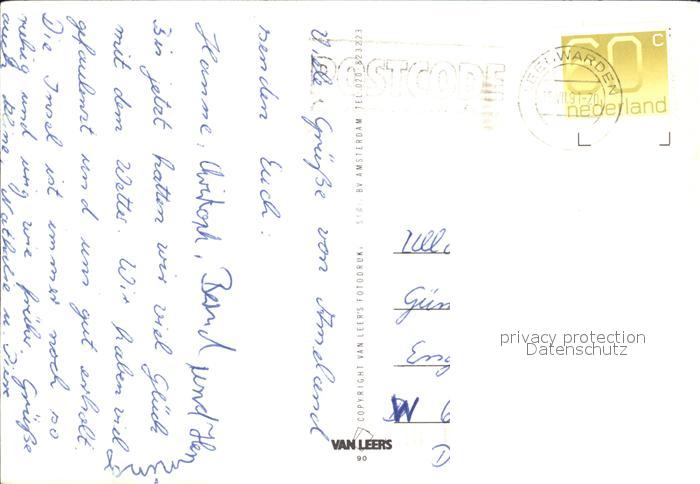 Viele Grüße von Ameland
senden Euch:
Hanne, Christoph, Bernd und
Bis jetzt hatten wir viel Glück
mit dem Wetter. Wir haben viel
gefaulenzt und uns gut erholt.
Die Insel ist immer noch so
ruhig und urig wie früher. Grüße
auch
POSTCODE
LEEUWARDEN
60 c
nederland
COPYRIGHT VAN LEER'S FOTODRUK, BV AMSTERDAM TEL.020-823223
VAN LEERS
90
W 6
D
privacy protection
Datenschutz